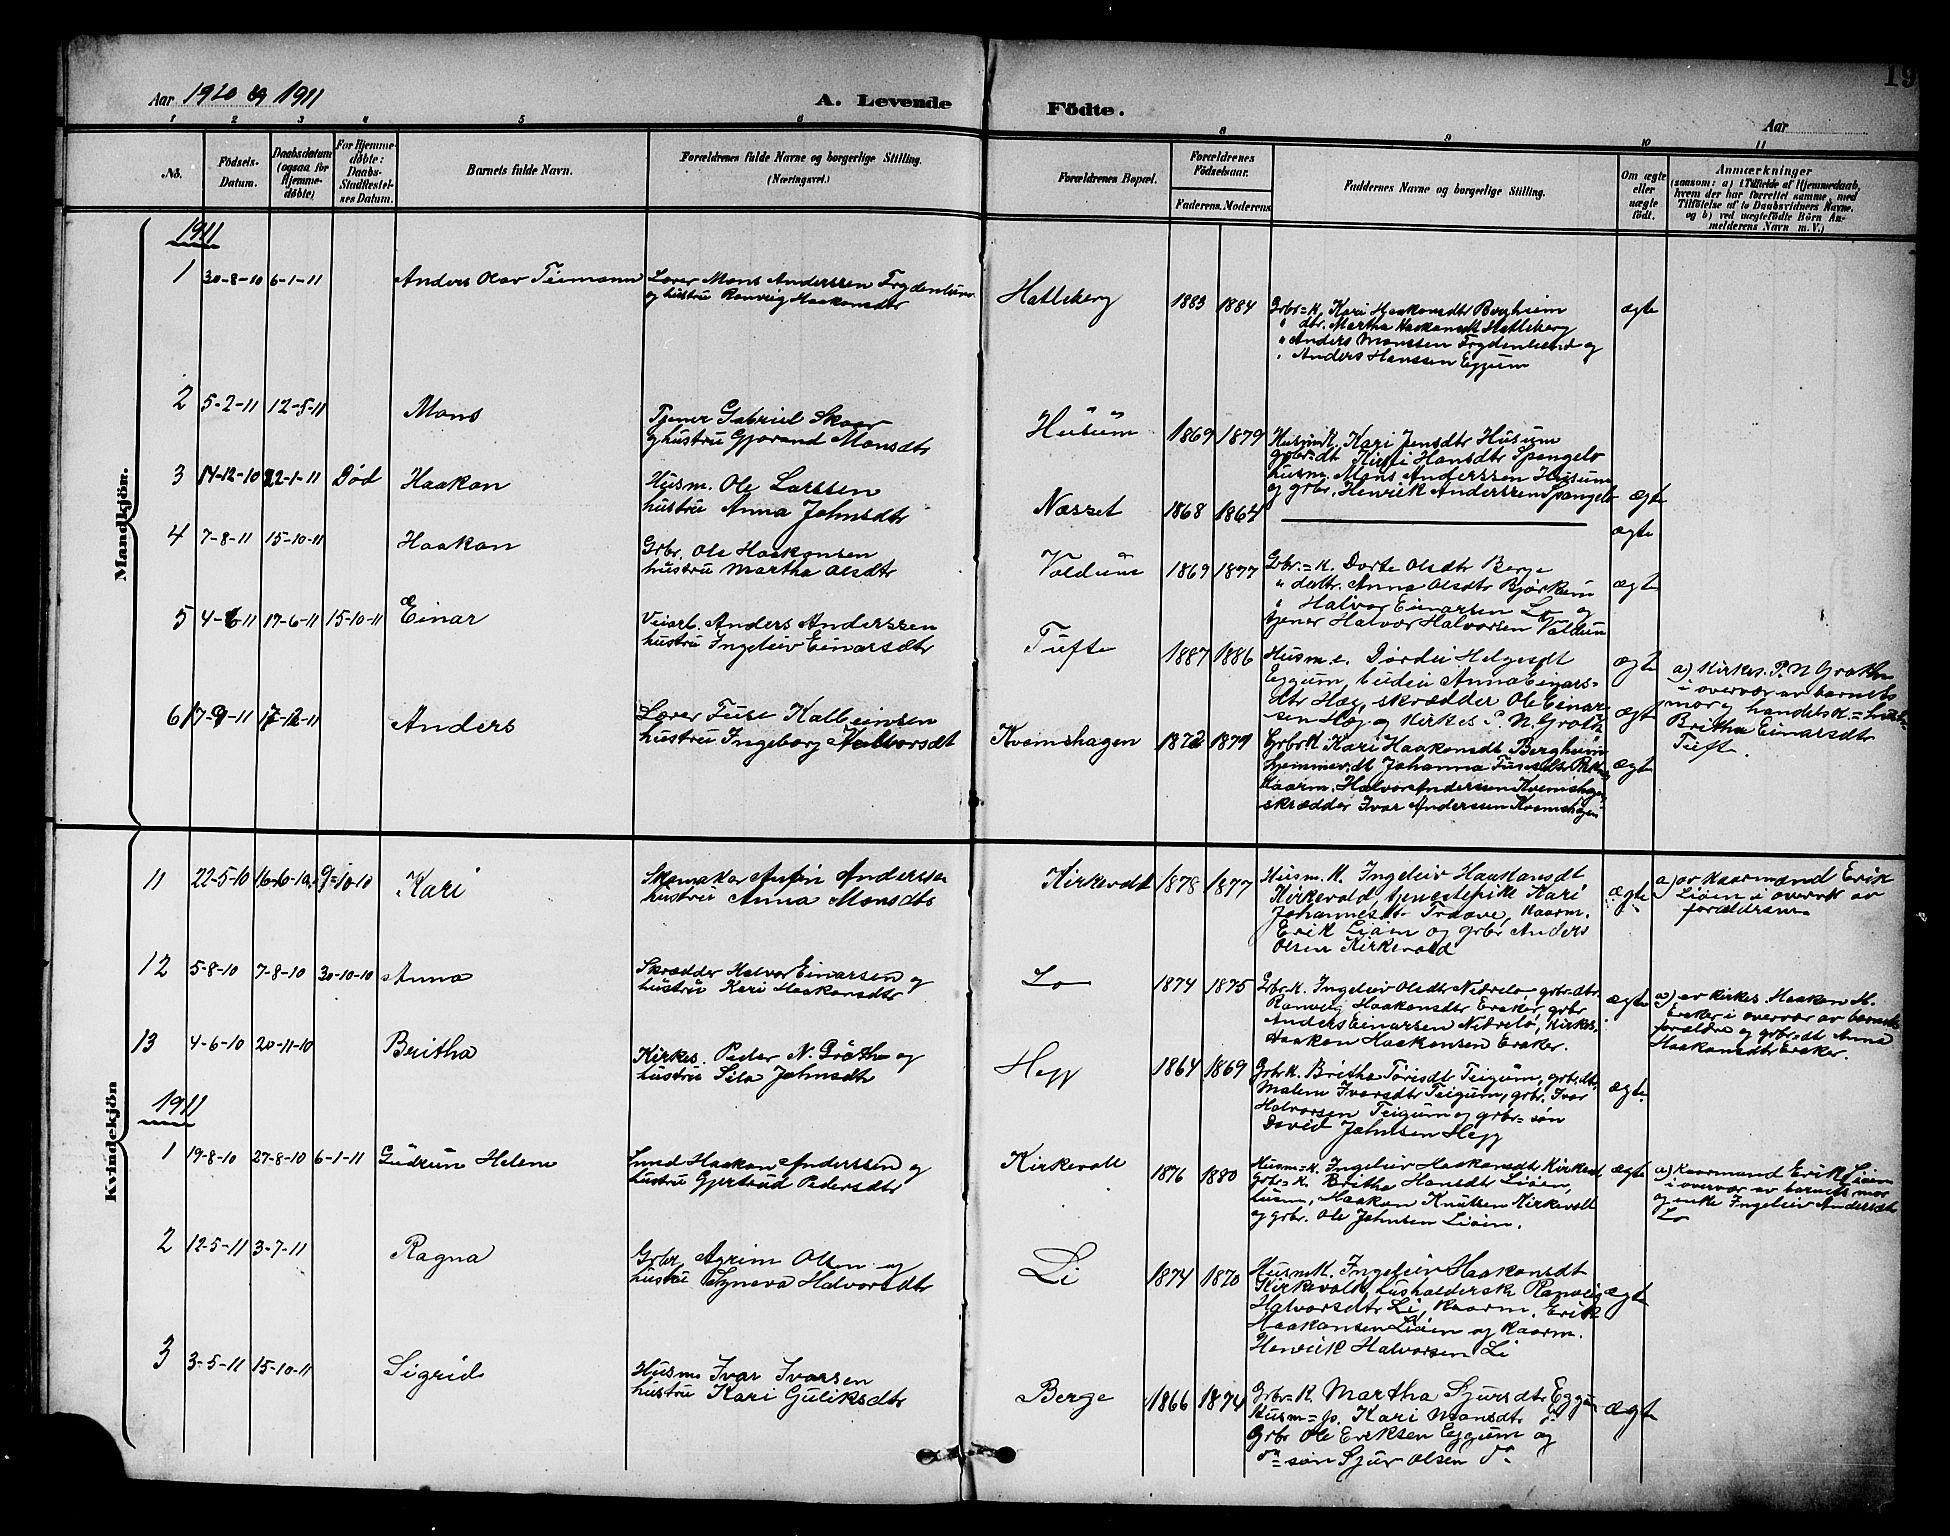 19
Aar 1910 og 1911
A. Levende Födte.
Aar
1 2 3 4 5 6 8 9 10 11
No.
Födsels-Datum.
Daabsdatum (ogsaa for Hjemme-döbte)
For Hjemme-döbte: Daabs-Stadfæstel-ses Datum.
Barnets fulde Navn.
Forældrenes fulde Navne og borgerlige Stilling. (Næringsvei.)
Forældrenes Bopæl.
Forældrenes Födselsaar.
Faderens. Moderens.
Faddernes Navne og borgerlige Stilling.
Om ægte eller uægte födt.
Anmærkninger
(saasom: a) i Tilfælde af Hjemmedaab,
hvem der har forrettet samme, med
Tilföielse af to Daabsvidners Navne,
og b) ved uægtefödte Börn An-
melderens Navn m. V.)
Mandkjön.
1911
1 30-8-10 6-1-11 Anders Olav Teimann
Lærer Mons Anderssen Frydenlund
og hustru Ranveig Haakonsdtr
Hatleberg 1883 1884
Grbr=k, Kari Haakonsdtr Bergheim
" dtr. Martha Haakonsdt Hatleberg
" Anders Monssen Frydenlund og
" Anders Hanssen Eggum
ægte
2 5-2-11 12-5-11 Mons
Tjener Gabriel Skaar
og hustru Gjorand Monsdtr
Husum 1869 1879
Husm.k. Kari Jensdtr Husum
grbr=dt Kirsti Hansdtr Spangelo
husm. Mons Anderssen Husum
og grbr. Henrik Anderssen Spangelo
ægte
3 14-12-10 22-1-11 Död Haakon
Husm. Ole Larssen
hustru Anna Johnsdtr
Næsset 1868 1864
ægte
4 7-8-11 15-10-11 Haakon
Grbr. Ole Haakonsen
hustru Martha Olsdtr
Voldum 1869 1877
Grbr=k. Dorte Olsdtr Berge
" dattr. Anna Olsdtr Bjørkum
" Halvor Einarsen Lo og
tjener Halvor Halvorsen Voldum
ægte
5 4-6-11 17-6-11 15-10-11 Einar
Veiarb. Anders Anderssen
hustru Ingeleiv Einarsdtr
Tufte 1887 1886
Husm.e. Dordei Helgesdt
Eggum, budei Anna Einars=
dtr Hæg, skrædder Ole Einar
sen Hæg og Kirkes. P. N. Grøth
ægte
a) Kirkes. P. N Grøthe
i overvær av barnets
mor og handelsk=
Britha Einarsdtr
Tufte.
ægte
6 17-9-11 17-12-11 Anders
Lærer Ture Kalbeinsen
hustru Ingeborg Halvorsdt
Kvemshagen 1872 1879
Grbr.k Kari Haakonsdt Bergheim
Johanna Turesdtr
Kaarm. Halvor Anderssen Kvemshagen
skrædder Ivar Anderssen Kvemshagen
ægte
Kvindekjön
11 22-5-10 16-6-10 9-10-10 Kari
Skomaker Anfin Anderssen
hustru Anna Monsdtr
Kirkevold 1878 1877
Husm.k. Ingeleiv Haakonsdt
Kirkevold, tjenestepike Kari
Johannesdtr Trdove, kaarm.
Erik Liøen og grbr Anders
Olsen Kirkevold
ægte
a) av kaarmand Erik
Liøen i overvær av
forældrene
12 5-8-10 7-8-10 30-10-10 Anna
Skrædder Halvor Einarsen og
hustru Kari Haakonsdtr
Lo 1874 1875
Grbr.k. Ingeleiv Olsdt Nedrelo, grbr=dtr.
Ranveig Haakonsdtr Eraker, grbr
Anders Einarsen Nedrelo, Kirkes.
Haakon Haakonsen Eraker.
ægte
a) av kirkes. Haakon H.
Eraker i overvær av barnets
forældre og grbr=dt Anna
Haakonsdtr Eraker.
13 4-6-10 20-11-10 Britha
Kirkes. Peder N. Grøthe og
hustru Sila Johnsdtr
Hegg 1864 1869
Grbr.k. Britha Torisdt Teigum, grbr.dtr.
Malene Ivarsdtr Teigum, grbr. Ivar
Halvorsen Teigum og grbr=søn
David Johnsen Hegg
ægte
1911
1 19-8-10 27-8-10 6-1-11 Gudrun Helene
Smed Haakon Anderssen og
hustru Gjertrud Pedersdtr
Kirkevoll 1876 1880
Husm=k. Ingeleiv Haakonsdt Kirkevol,
Grbr=k. Britha Hansdt Liøen,
husm, Haakon Knutsen Kirkevoll
og grbr. Ole Johnsen Liøen.
ægte
a) Kaarmand Erik Liøen
i overvær av barnets mor
og enke Ingeleiv Andersdt
Lo
2 12-5-11 3-7-11 Ragna
Grbr. Agrim Olsen og
hustru Synева Halvorsdtr
Li 1874 1870
Husm.k. Ingeleiv Haakonsdt
Kirkevoll, husholderske Ranveig
Halvorsdtr Li, kaarm. Erik
Haakonsen Liøen og kaarm.
Henrik Halvorsen Li
ægte
3 3-5-11 15-10-11 Sigrid
Husm. Ivar Ivarsen
hustru Kari Guliksdtr
Berge 1866 1874
Grbr=k. Martha Sjursdtr Eggum
Husm= Kari Monsdtr do
Grbr Ole Eriksen Eggum og
do=søn Sjur Olsen do
ægte